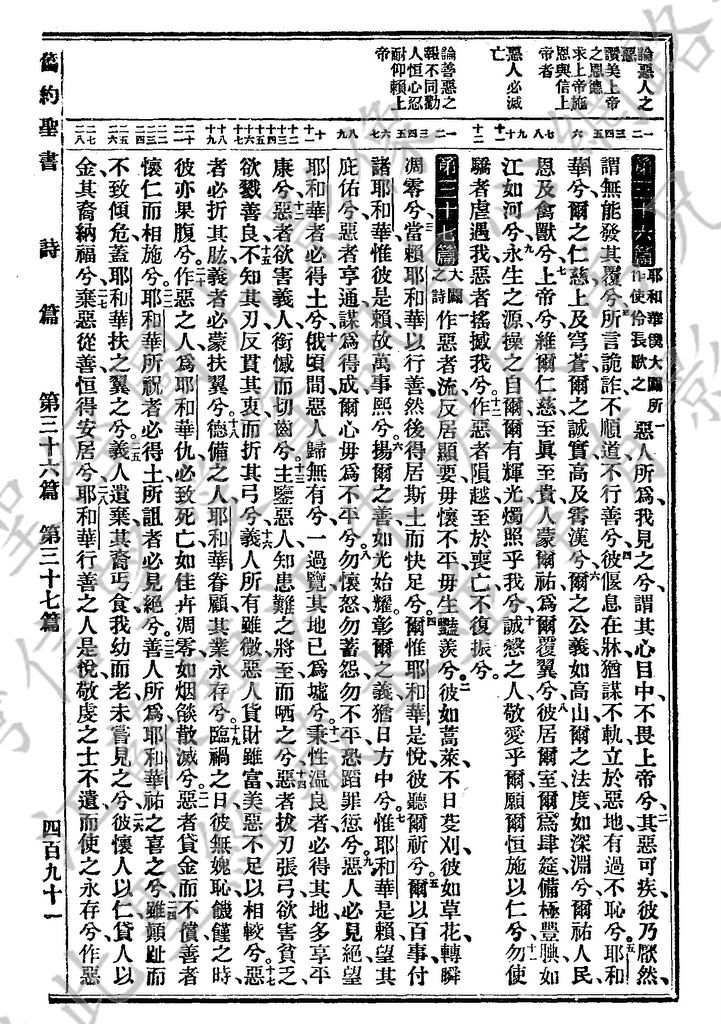 論惡人之
惡
讚美上帝
之恩德
求上帝施
恩與信上
帝者
惡人必滅
亡
論善惡之
報不同勸
人恒心忍
耐仰賴上
帝
第三十六篇 耶和華僕大闢所作使伶長歌之
一惡人所爲我見之兮謂其心目中不畏上帝兮二其惡可疾彼乃厭然
謂無能發其覆兮三所言詭詐不順道不行善兮四彼偃息在牀猶謀不軌立於惡地有過不恥兮五耶和
華兮爾之仁慈上及穹蒼爾之誠實高及霄漢兮六爾之公義如高山爾之法度如深淵兮爾祐人民
恩及禽獸兮七上帝兮維爾仁慈至眞至貴人蒙爾祐爲爾覆翼兮八彼居爾室爾爲肆筵備極豐腆如
江如河兮九永生之源操之自爾爾有輝光燭照乎我兮十誠慤之人敬愛乎爾願爾恒施以仁兮十一勿使
驕者虐遇我惡者搖撼我兮十二作惡者隕越至於喪亡不復振兮
第三十七篇 大闢之詩
一作惡者流反居顯要毋懷不平毋生豔羨兮二彼如蒿萊不日芟刈彼如草花轉瞬
凋零兮三當賴耶和華以行善然後得居斯土而快足兮四爾惟耶和華是悅彼聽爾祈兮五爾以百事付
諸耶和華惟彼是賴故萬事熙兮六揚爾之善如光始耀彰爾之義猶日方中兮七惟耶和華是賴望其
庇佑兮惡者亨通謀爲得成爾心毋爲不平兮八勿懷怒勿蓄怨勿不平恐蹈罪愆兮九惡人必見絕望
耶和華者必得土兮十俄頃間惡人歸無有兮一過覽其地已爲墟兮十一秉性温良者必得其地多享平
康兮十二惡者欲害義人銜憾而切齒兮十三主鑒惡人知患難之將至而哂之兮十四惡者拔刃張弓欲害貧乏
欲戮善良十五不知其刃反貫其衷而折其弓兮十六義人所有雖微惡人貨財雖富美惡不足以相較兮十七惡
者必折其肱義者必蒙扶翼兮十八德備之人耶和華眷顧其業永存兮十九臨禍之日彼無媿恥饑饉之時
彼亦果腹兮二十作惡之人爲耶和華仇必致死亡如佳卉凋零如烟燄散滅兮二一惡者貸金而不償善者
懷仁而相施兮二二耶和華所祝者必得土所詛者必見絕兮二三善人所爲耶和華祐之喜之兮二四雖顛趾而
不致傾危蓋耶和華扶之翼之兮二五義人遺棄其裔丐食我幼而老未嘗見之兮二六彼懷人以仁貸人以
金其裔納福兮二七棄惡從善恒得安居兮二八耶和華行善之人是悅敬虔之士不遺而使之永存兮作惡
舊約聖書 詩篇 第三十六篇 第三十七篇 四百九十一